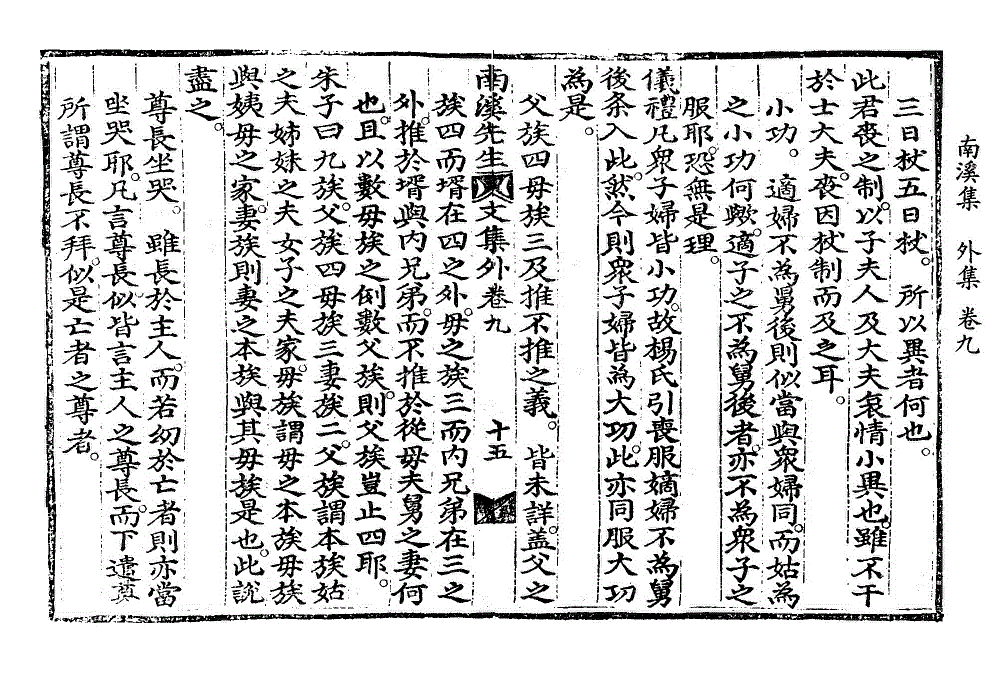 南溪集　外集　卷九
三日杖五日杖。　所以異者何也。
此君喪之制。以子夫人及大夫哀情小異也。雖不干
於士大夫。喪因杖制而及之耳。
小功。　適婦不為舅後則似當與衆婦同。而姑為
之小功何歟。適子之不為舅後者。亦不為衆子之
服耶。恐無是理。
儀禮凡衆子婦皆小功。故楊氏引喪服嫡婦不為舅
後条入此。然今則衆子婦皆為大功。此亦同服大功
為是。
父族四母族三及推不推之義。　皆未詳。盖父之
南溪先生文集外卷九　十五
族四而壻在四之外。母之族三而內兄弟在三之
外。推於壻與內兄弟。而不推於從母夫舅之妻何
也。且以數母族之倒數父族。則父族豈止四耶。
朱子曰九族。父族四母族三妻族二。父族謂本族姑
之夫姊妹之夫女子之夫家。母族謂母之本族母族
與姨母之家。妻族則妻之本族與其母族是也。此說
盡之。
尊長坐哭。　雖長於主人。而若幼於亡者則亦當
坐哭耶。凡言尊長似皆言主人之尊長。而下遣奠
所謂尊長不拜。似是亡者之尊者。